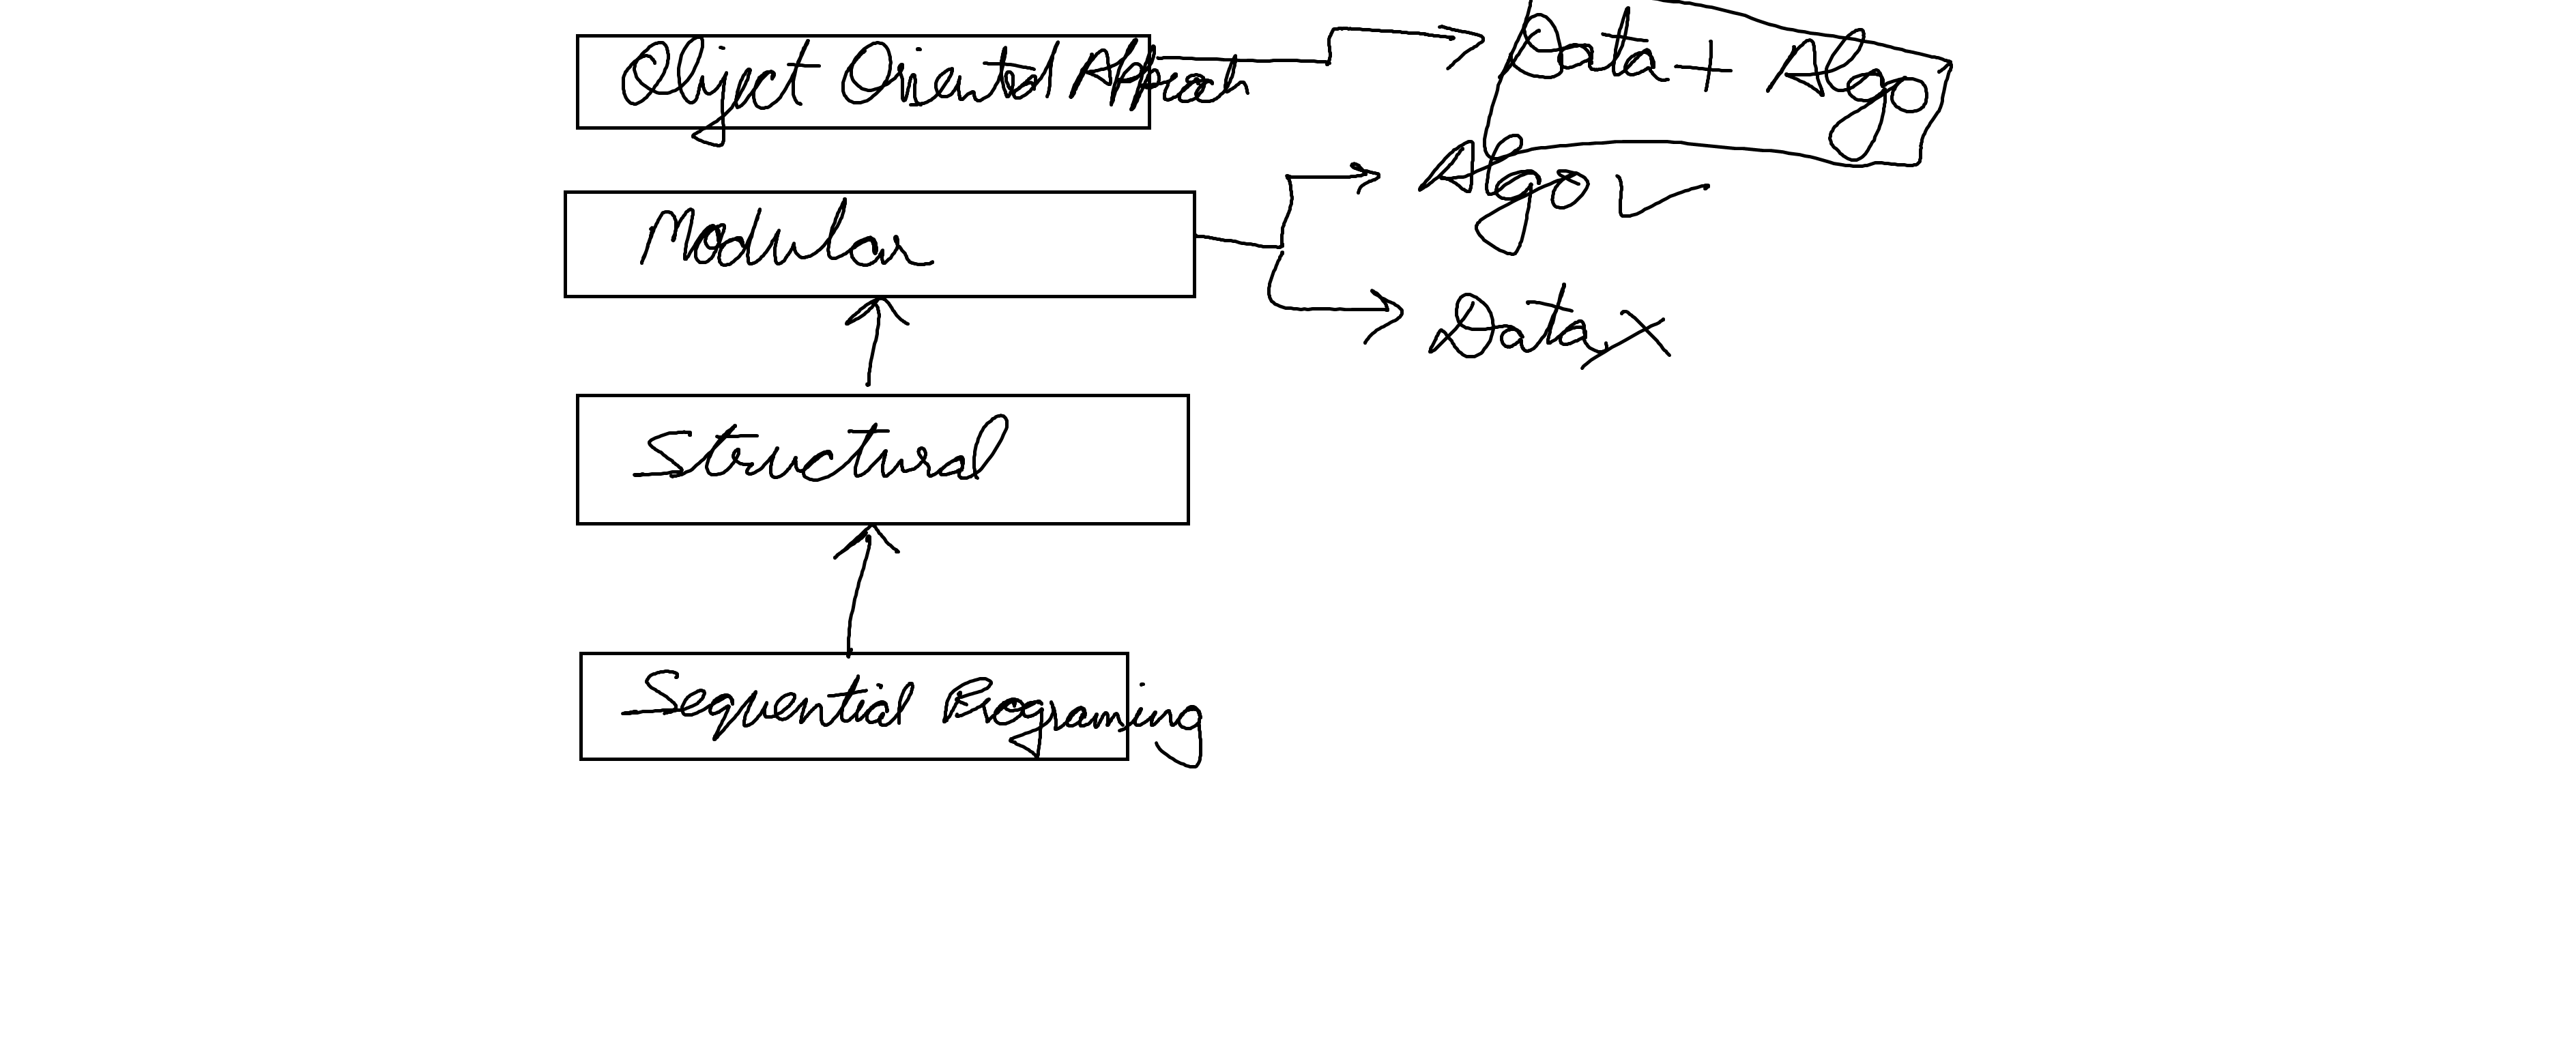 Object Oriented Approach
Data + Algo
Modular
Algo ✓
Data ✗
Structural
Sequential Programing